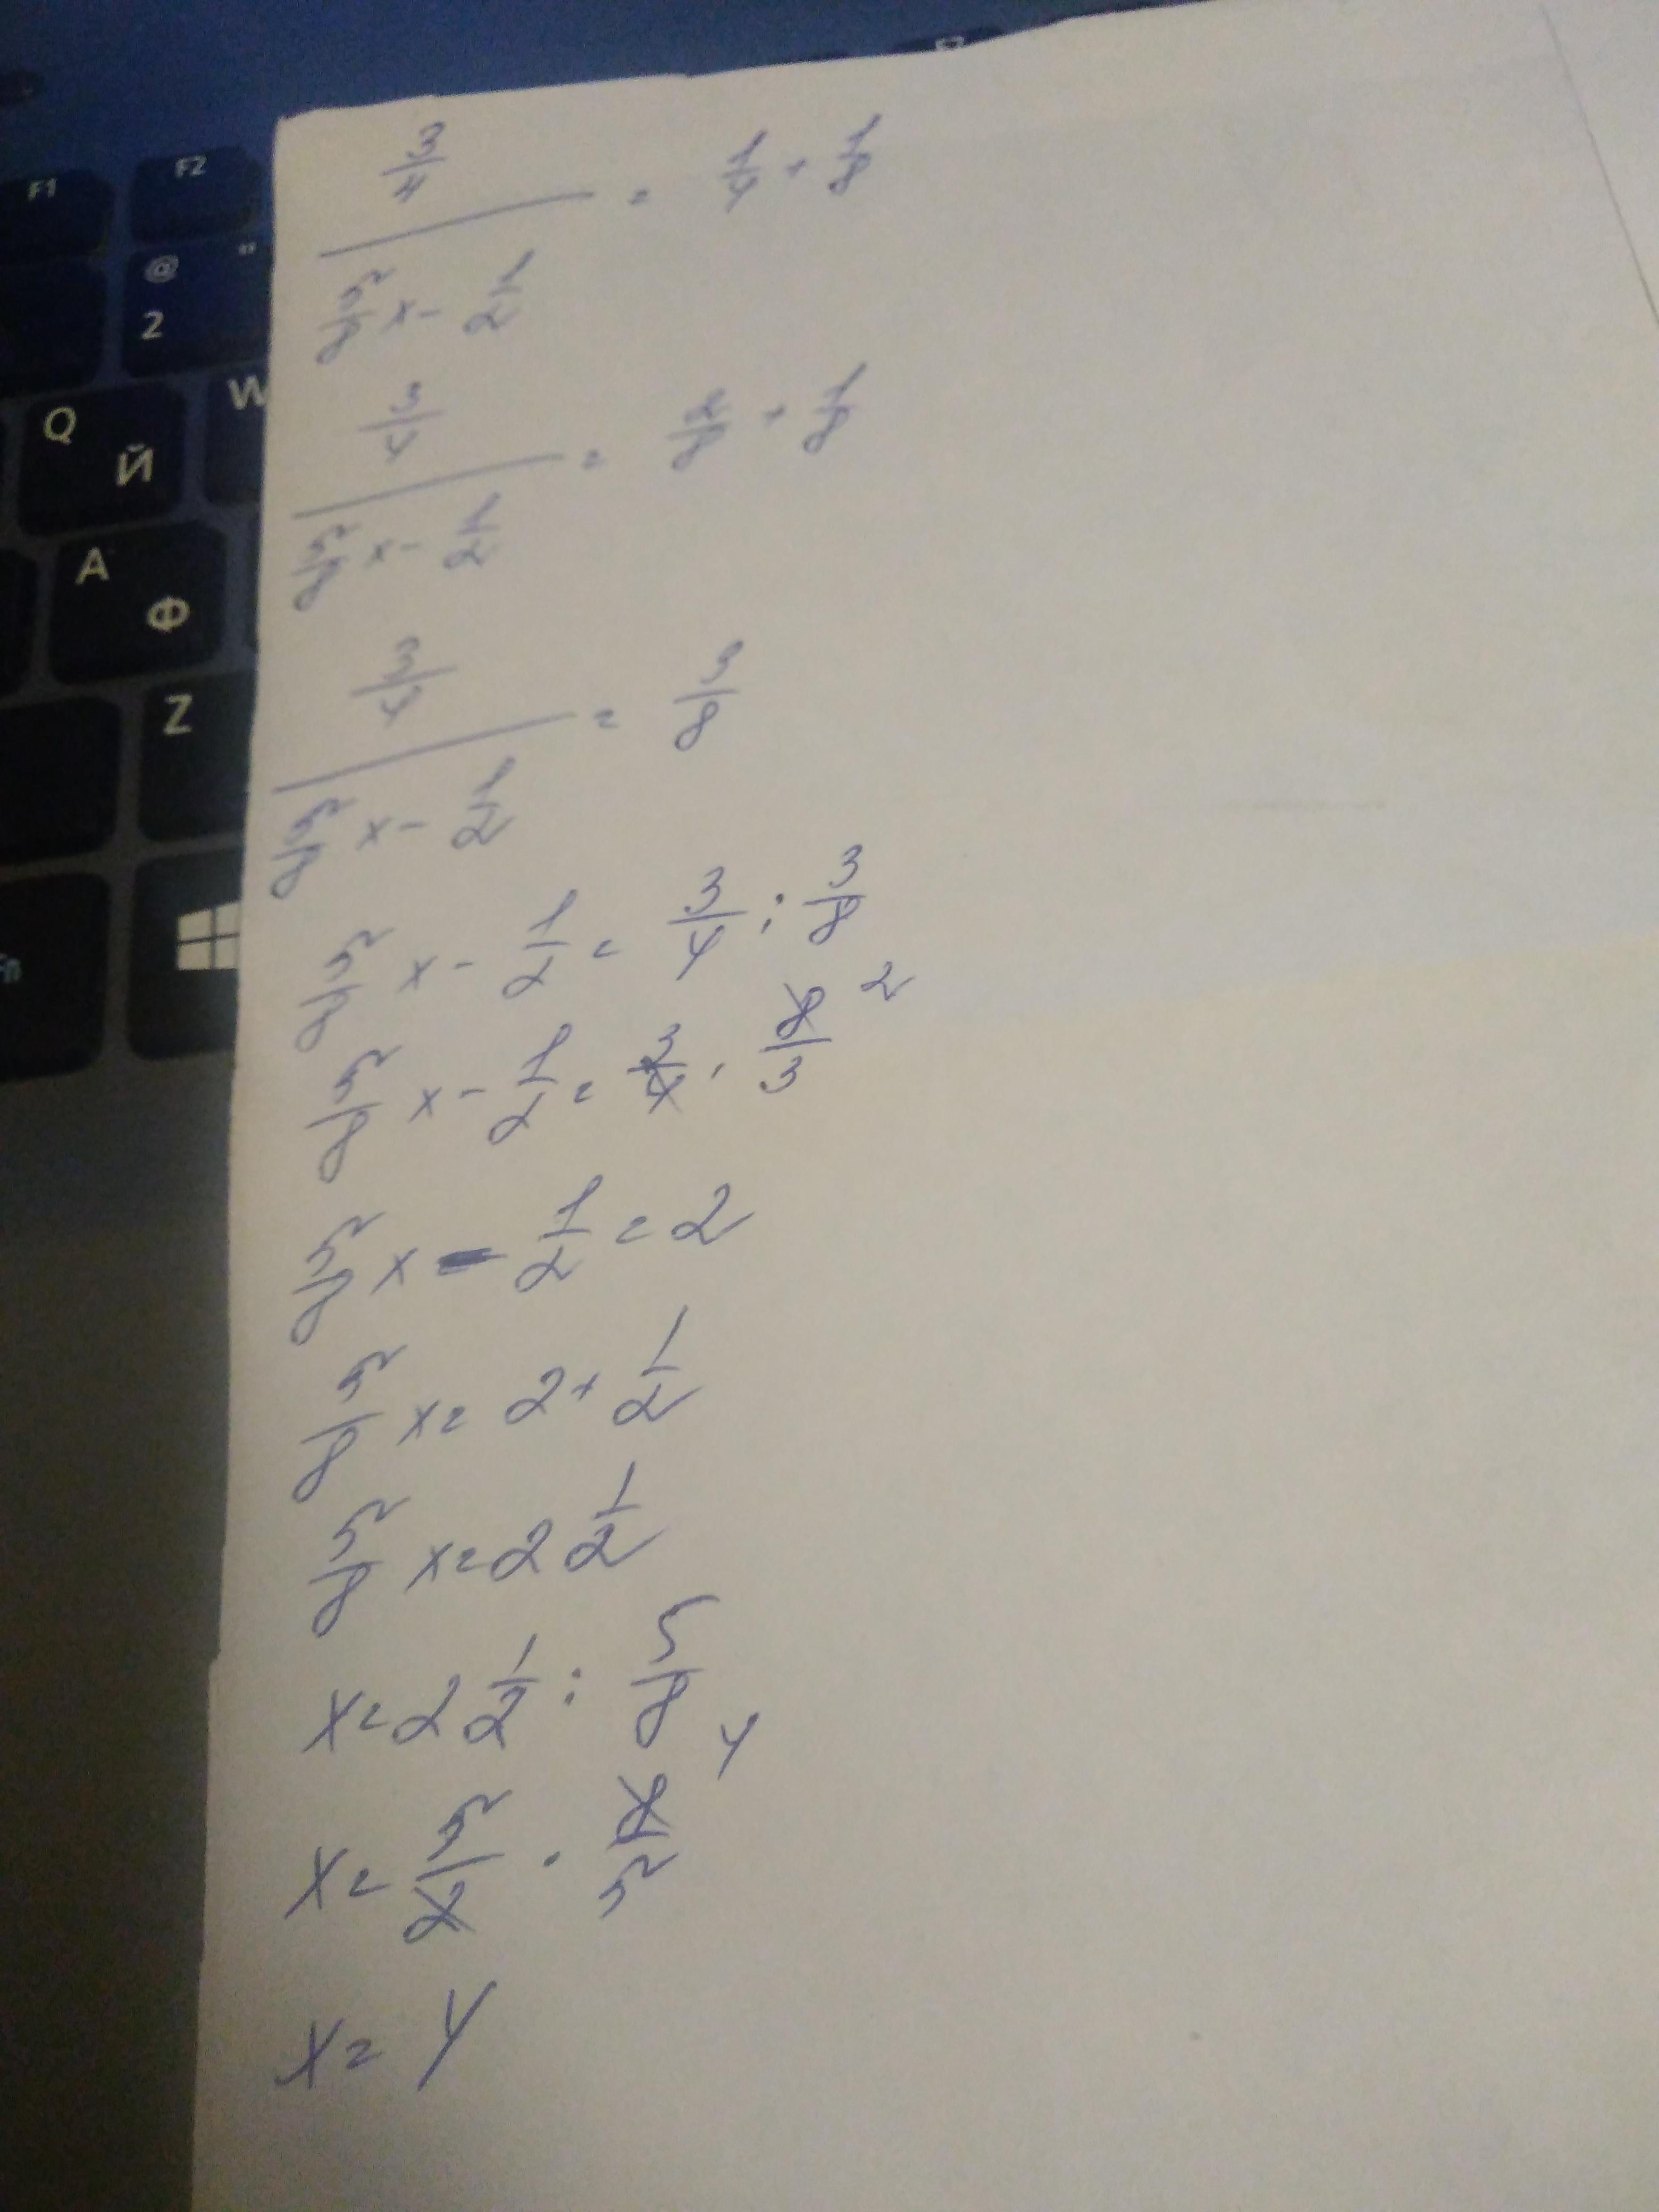 F1 F2 F3
@ "
2
Q Й W
A Ф
Z
Fn
3/4 / (5/8 x - 1/2) = 1/4 + 1/8
3/4 / (5/8 x - 1/2) = 2/8 + 1/8
3/4 / (5/8 x - 1/2) = 3/8
5/8 x - 1/2 = 3/4 : 3/8
5/8 x - 1/2 = 3/4 · 8/3 2
5/8 x - 1/2 = 2
5/8 x = 2 + 1/2
5/8 x = 2 1/2
x = 2 1/2 : 5/8
x = 5/2 · 8/5 4
x = 4